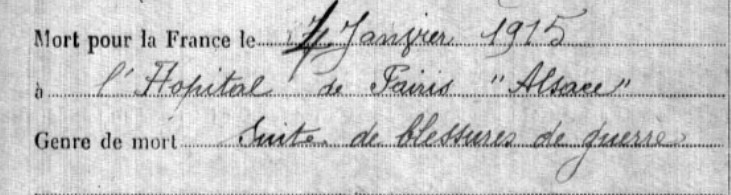 Mort pour la France le 7 Janvier 1915
à l'Hopital de Pairis "Alsace"
Genre de mort Suite de blessures de guerre